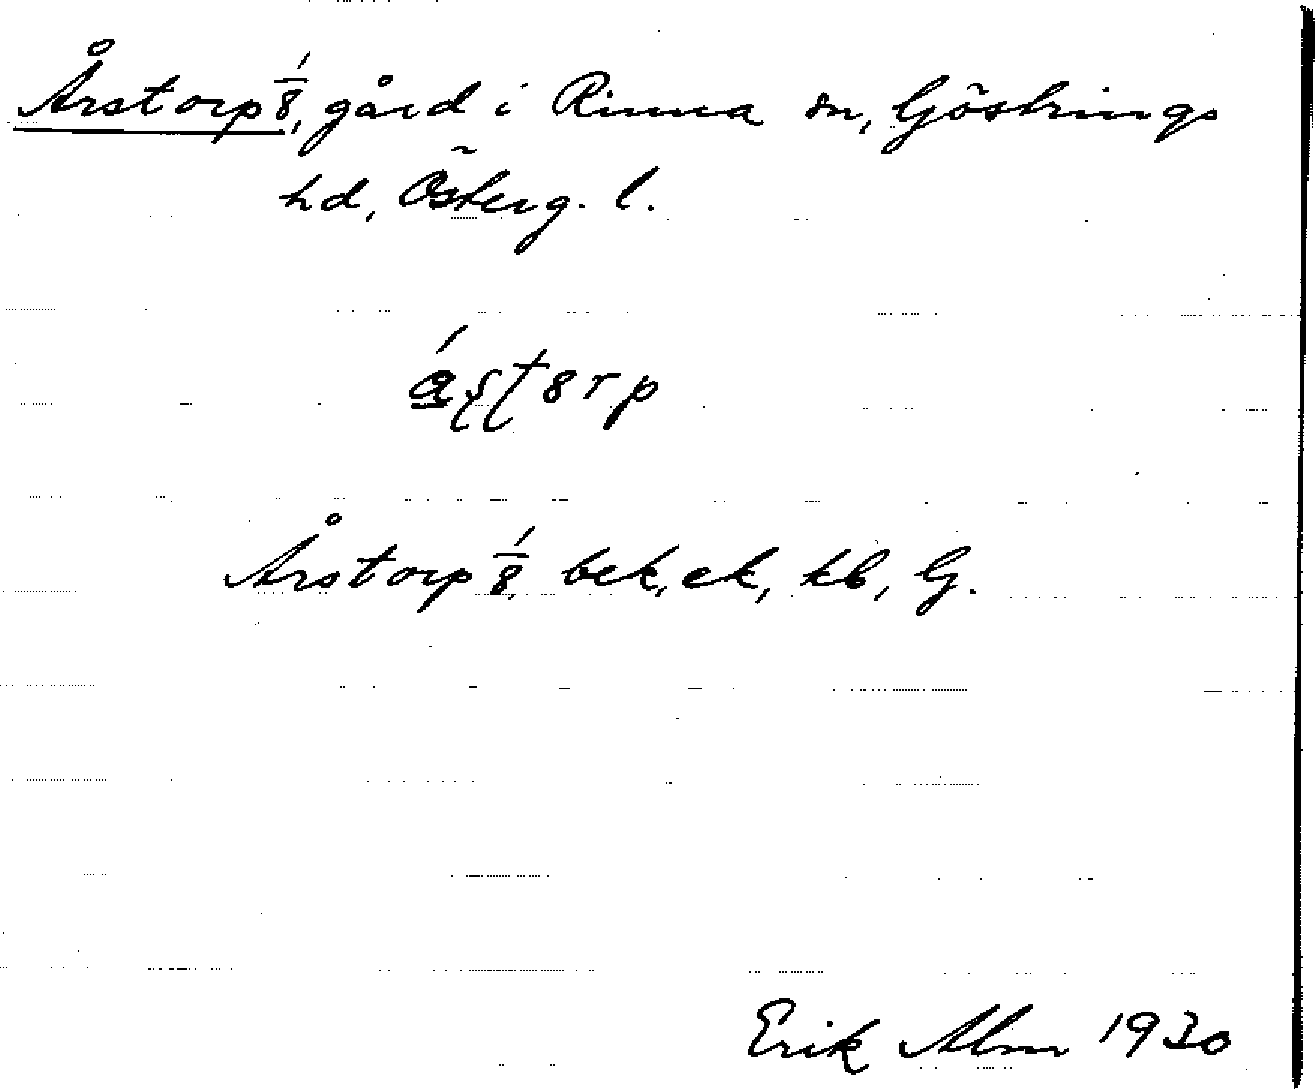 Årstorp 1/8, gård i Rinna sn, Göstrings
hd, Österg. l.
Årstorp 1/8, bek, ek, kb, G.
Erik Alm 1930